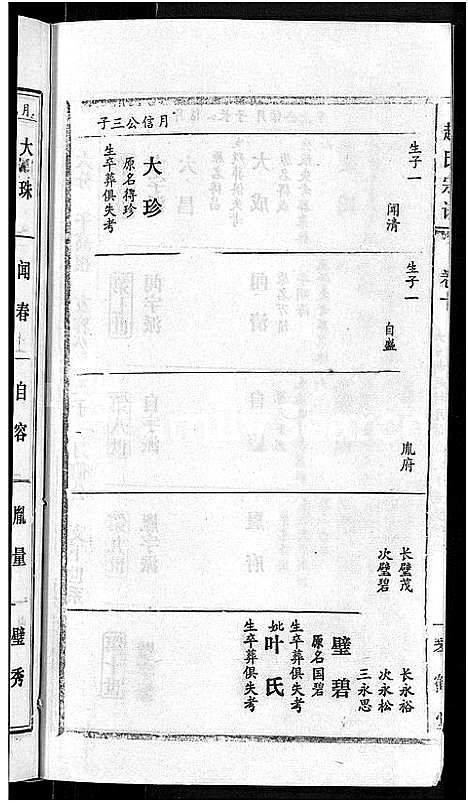 赵氏宗谱
卷十
生子一
闻清
生子一
自盛
胤府
长璧茂
次璧碧
长永裕
次永松
三永思
月信公三子
大珍
原名得珍
生卒葬俱失考
璧碧
原名国碧
生卒葬俱失考
妣叶氏
生卒葬俱失考
月
大珠
闻春
自容
胤量
璧秀